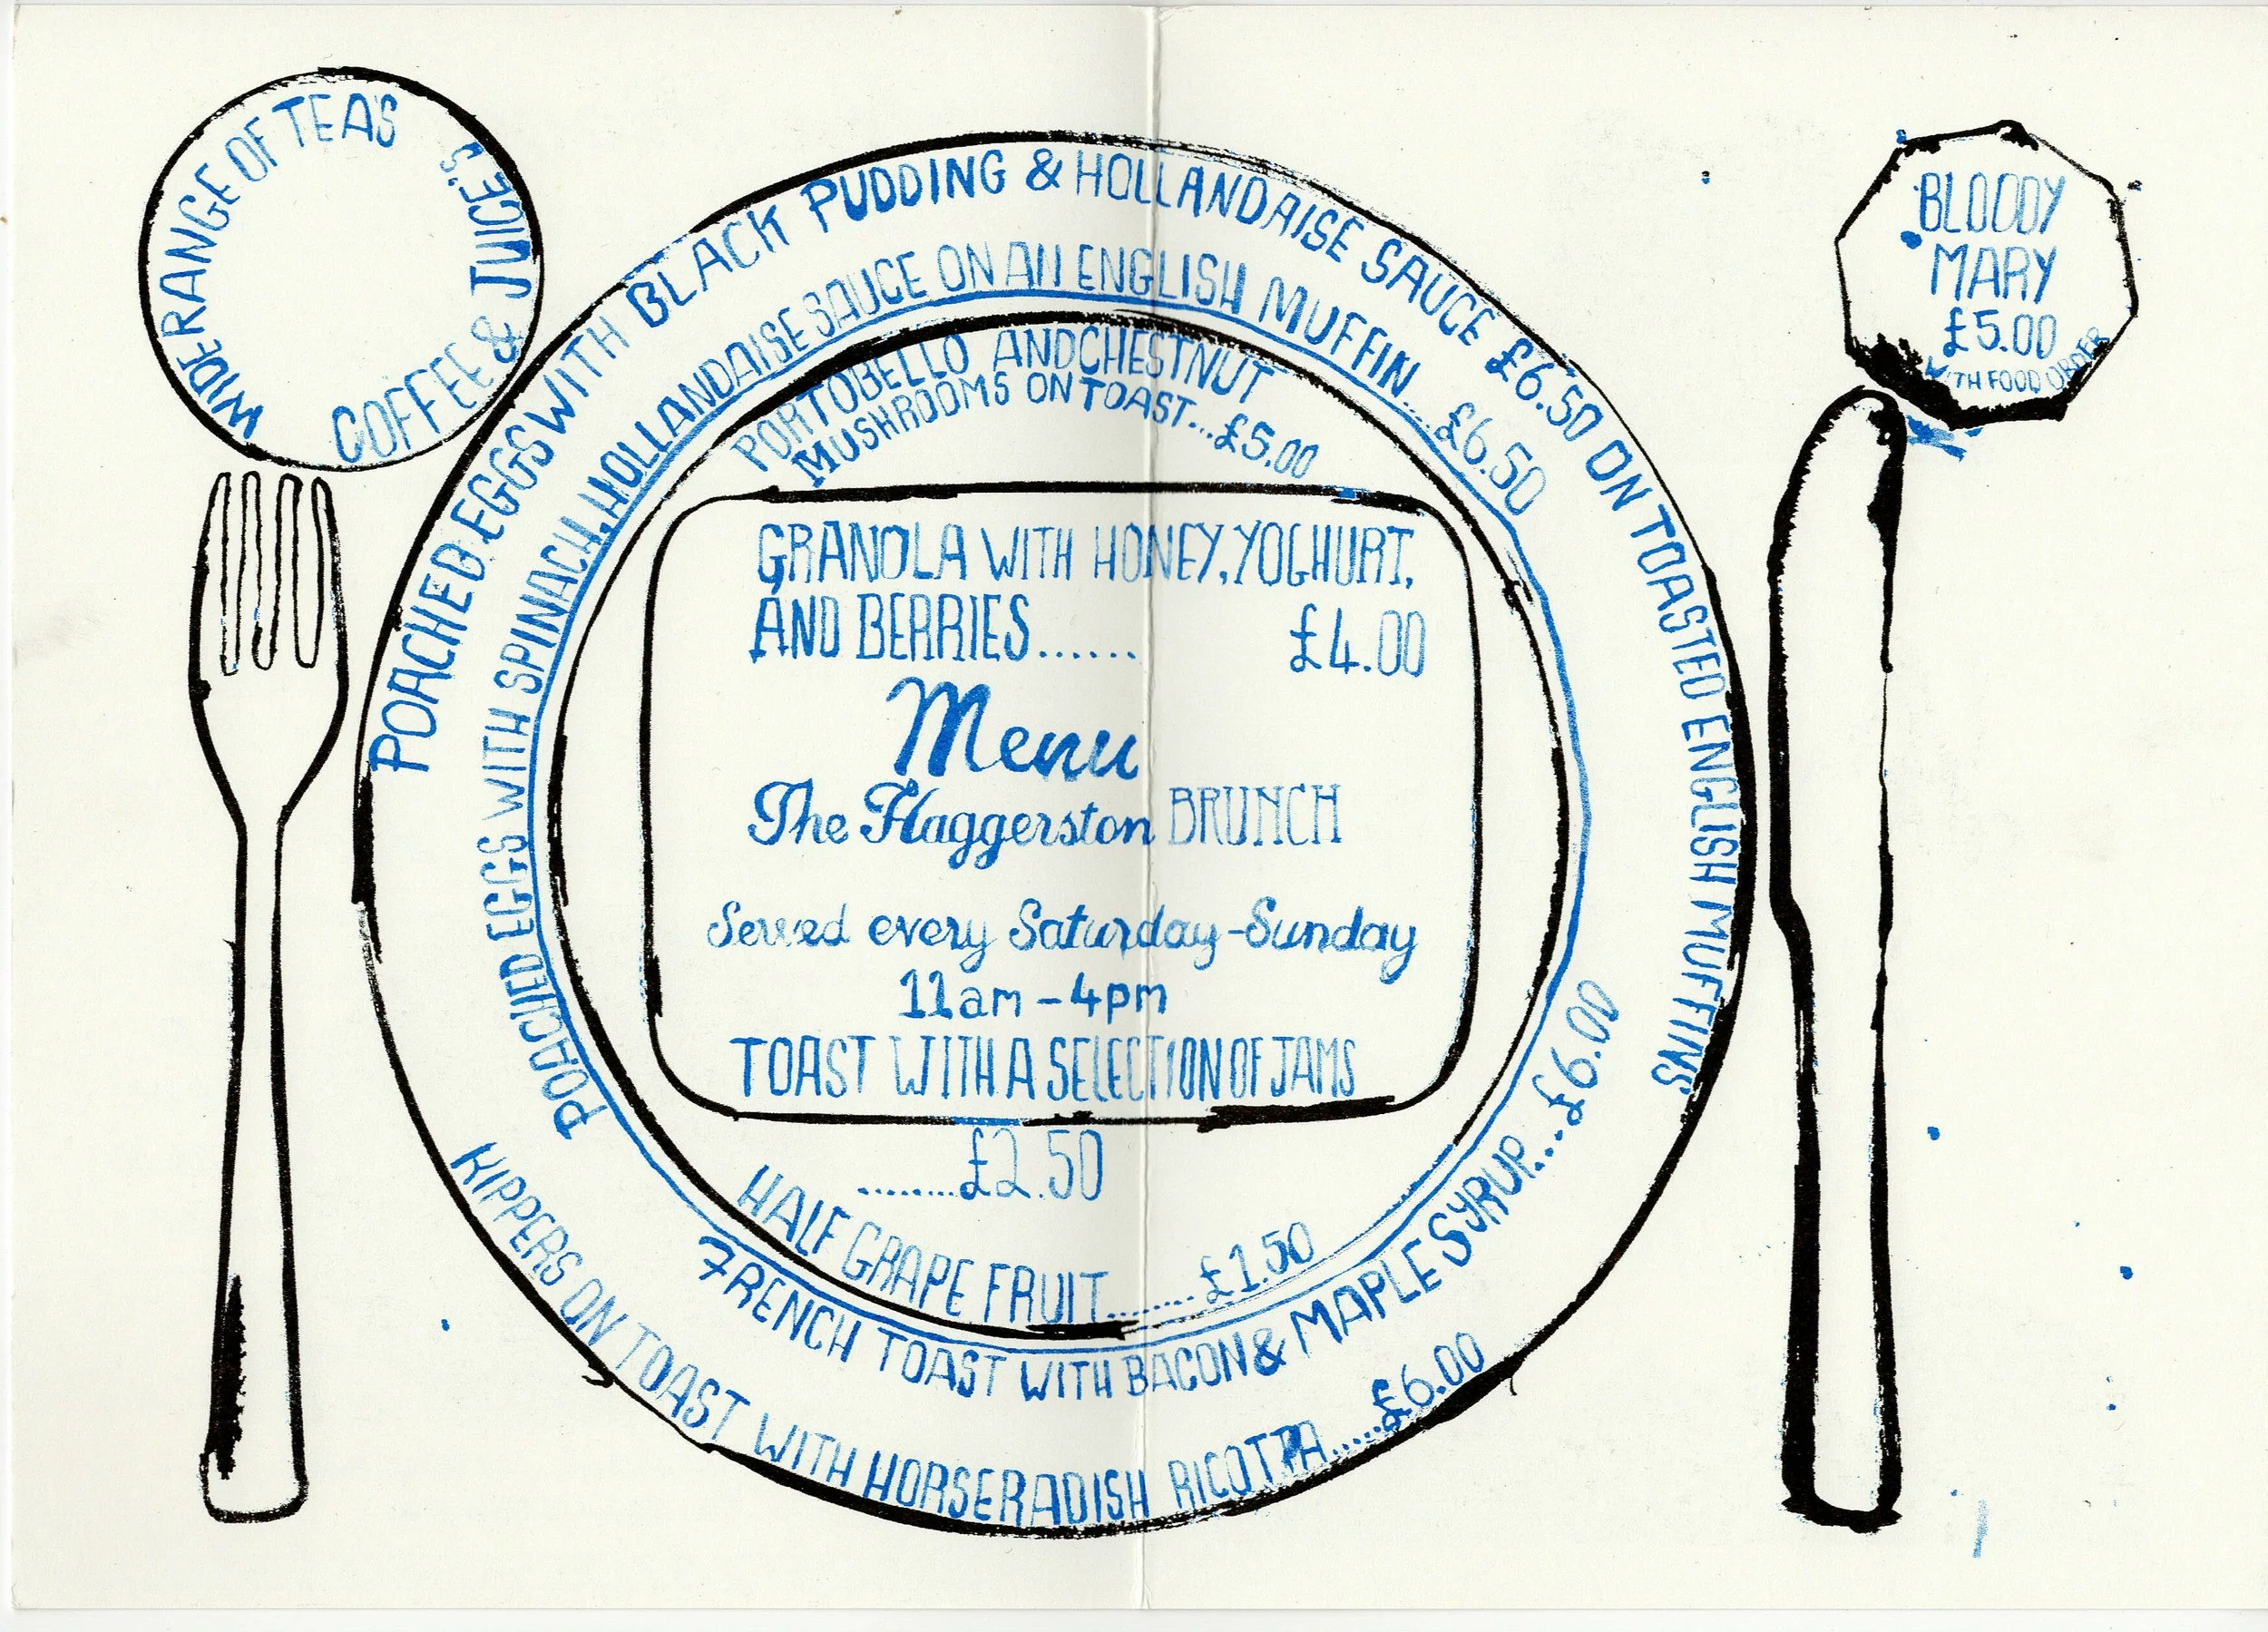 WIDE RANGE OF TEAS
COFFEE & JUICE'S
BLOODY
MARY
£5.00
WITH FOOD ORDER
POACHED EGGS WITH BLACK PUDDING & HOLLANDAISE SAUCE £6.50 ON TOASTED ENGLISH MUFFINS
POACHED EGGS WITH SPINACH, HOLLANDAISE SAUCE ON AN ENGLISH MUFFIN...£6.50
PORTOBELLO AND CHESTNUT
MUSHROOMS ON TOAST...£5.00
GRANOLA WITH HONEY, YOGHURT,
AND BERRIES...... £4.00
Menu
The Haggerston BRUNCH
Served every Saturday-Sunday
11am - 4pm
TOAST WITH A SELECTION OF JAMS
........£2.50
HALF GRAPE FRUIT........£1.50
FRENCH TOAST WITH BACON & MAPLE SYRUP....£6.00
KIPPERS ON TOAST WITH HORSERADISH RICOTTA.....£6.00